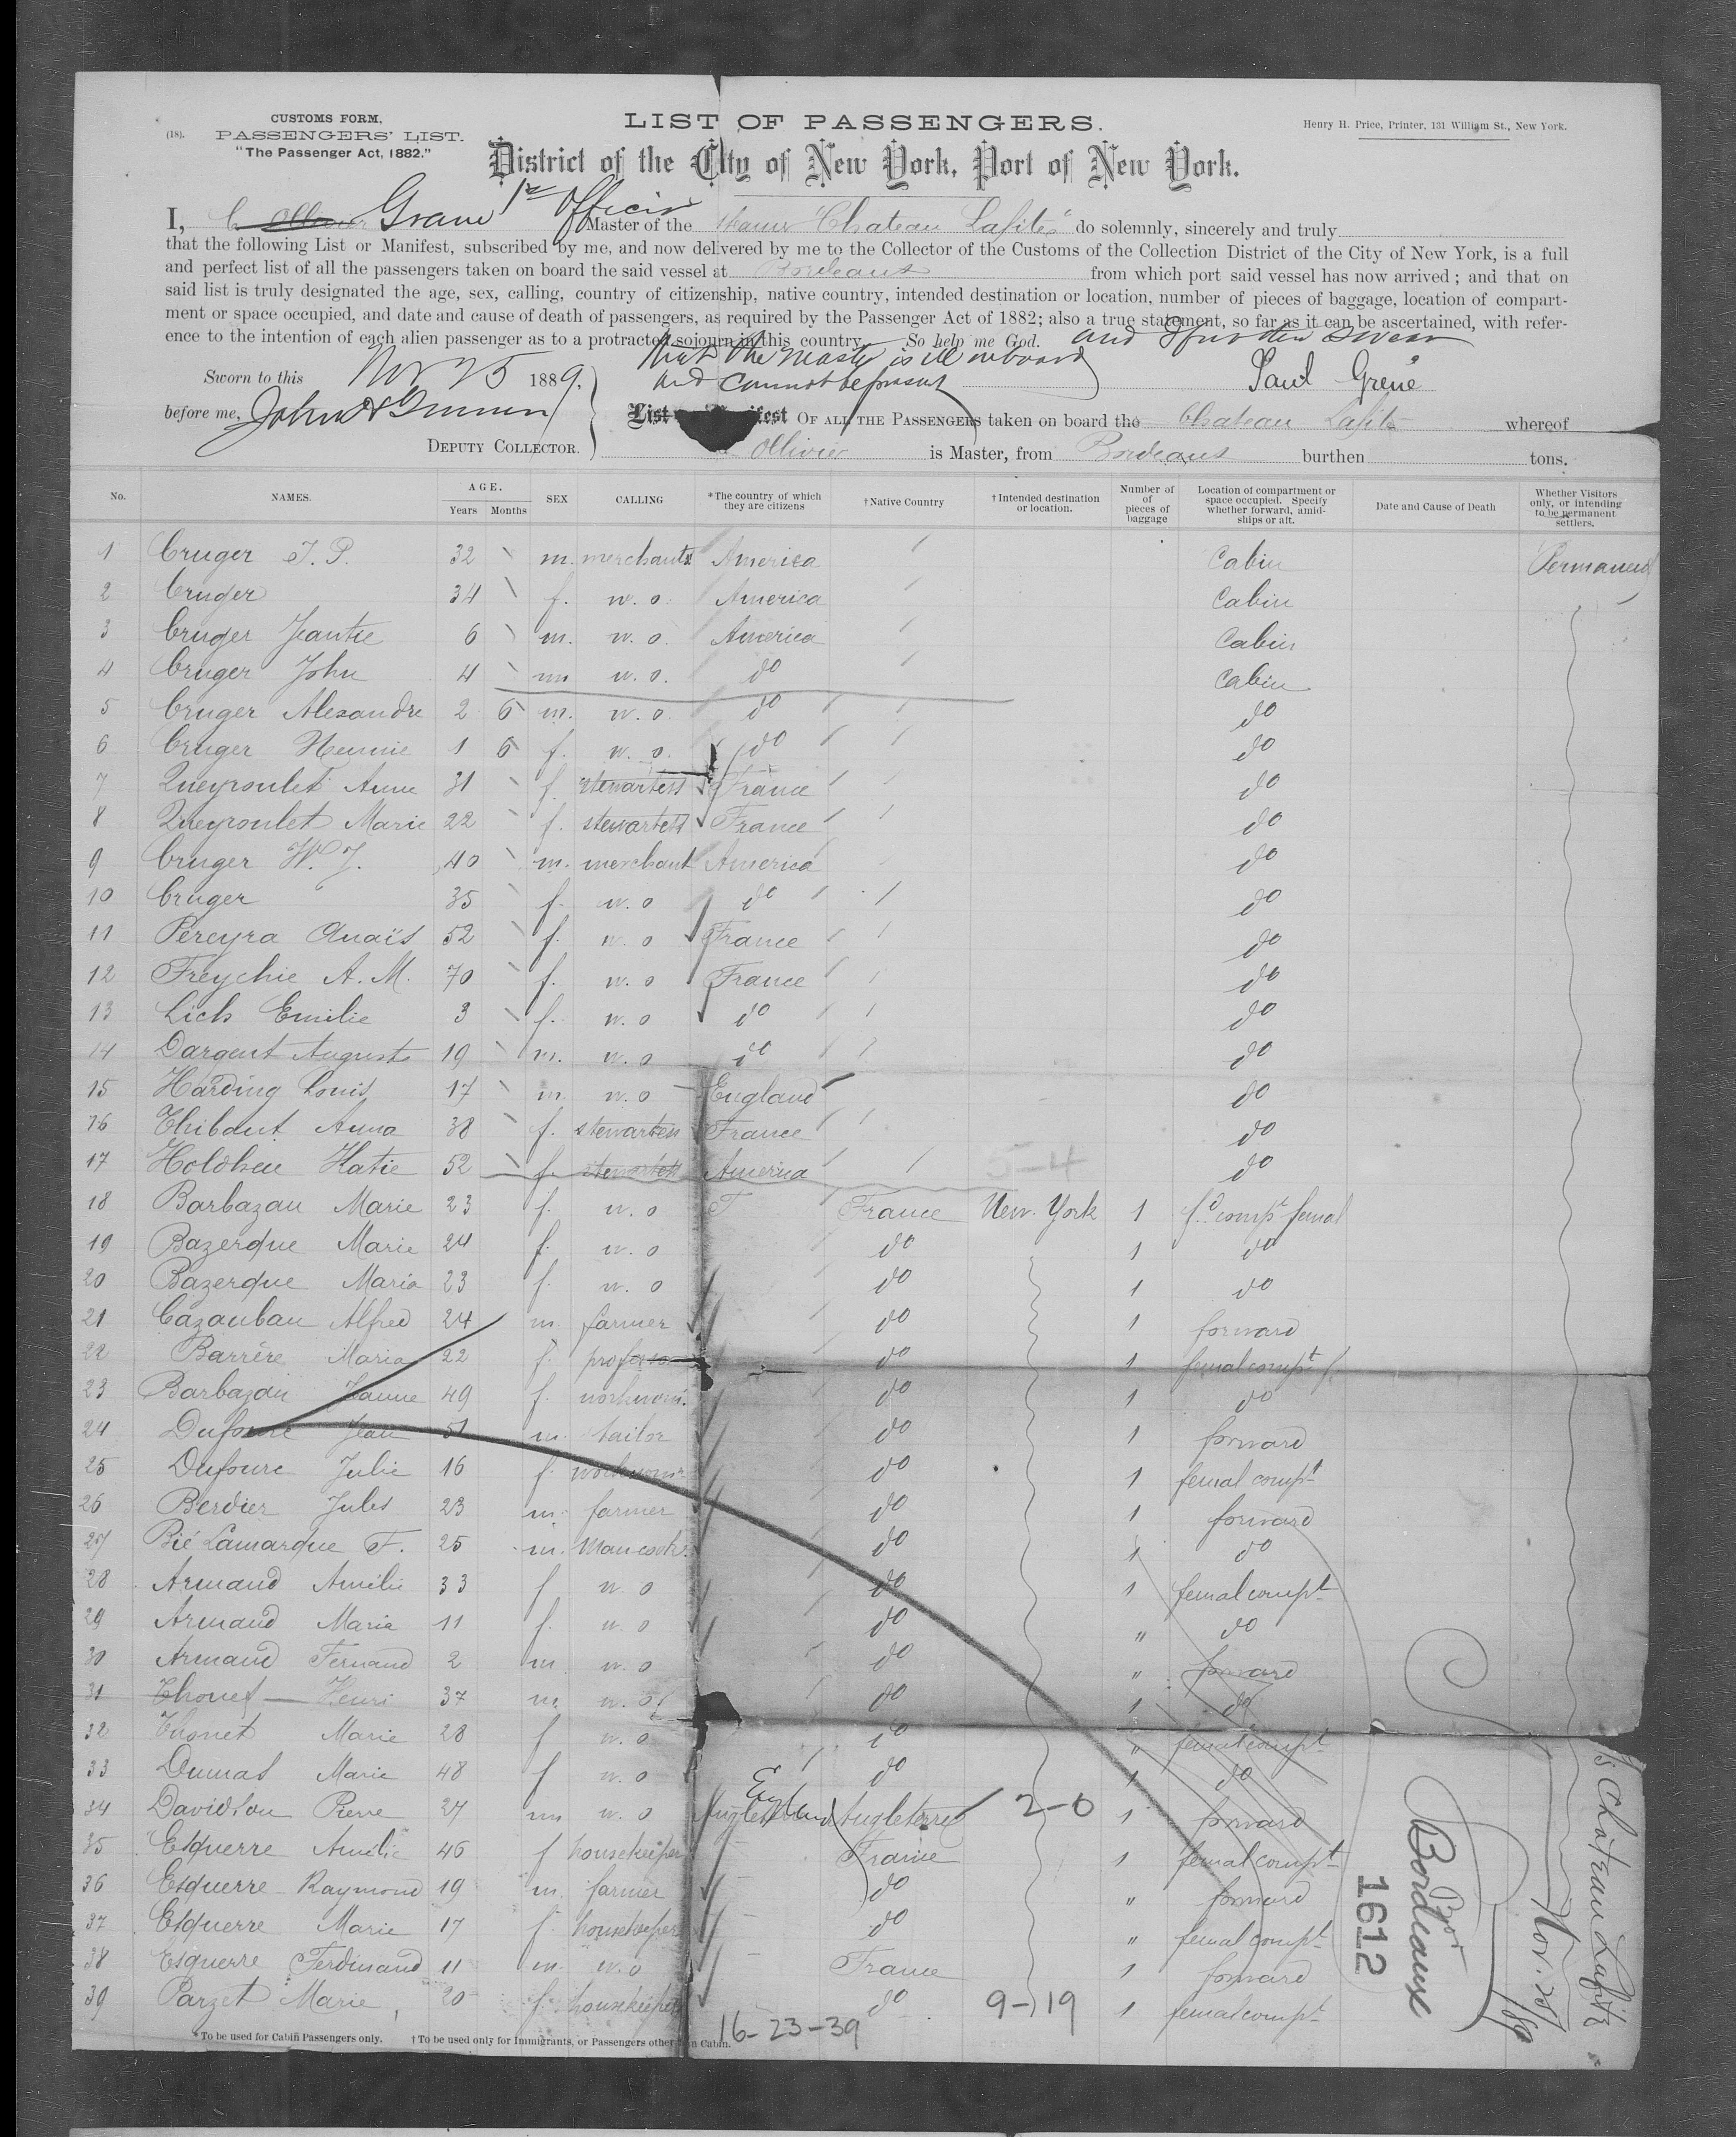 (18).
CUSTOMS FORM,
PASSENGERS' LIST.
"The Passenger Act, 1882."
LIST OF PASSENGERS.
Henry H. Price, Printer, 131 William St., New York.
District of the City of New York, Port of New York.
I, 1st Officer Master of the Chateau Lafite do solemnly, sincerely and truly
that the following List or Manifest, subscribed by me, and now delivered by me to the Collector of the Customs of the Collection District of the City of New York, is a full
and perfect list of all the passengers taken on board the said vessel at Bordeaux from which port said vessel has now arrived; and that on
said list is truly designated the age, sex, calling, country of citizenship, native country, intended destination or location, number of pieces of baggage, location of compart-
ment or space occupied, and date and cause of death of passengers, as required by the Passenger Act of 1882; also a true statement, so far as it can be ascertained, with refer-
ence to the intention of each alien passenger as to a protracted sojourn in this country. So help me God. and I further swear
that the master is ill onboard
and cannot be present
Sworn to this Nov 25 1889.
Paul
before me, John
DEPUTY COLLECTOR.
List Manifest OF ALL THE PASSENGERS taken on board the Chateau Lafite whereof
Ollivier is Master, from Bordeaux burthen tons.
No. NAMES. AGE. Years Months SEX CALLING *The country of which they are citizens †Native Country †Intended destination or location. Number of of pieces of baggage Location of compartment or space occupied. Specify whether forward, amid-ships or aft. Date and Cause of Death Whether Visitors only, or intending to be permanent settlers.
1 Cruger J. P. 32 m. merchants America Cabin Permanent
2 Cruger 34 f. w. o. America Cabin
3 Cruger 6 m. w. o. America Cabin
4 Cruger John 4 m w. o. do Cabin
5 Cruger Alexandre 2 6 m. w. o. do do
6 Cruger 1 6 f. w. o. do do
7 Queyroulet Anne 31 f. stewartess France do
8 Queyroulet Marie 22 f. stewartess France do
9 Cruger W. J. 40 m. merchant America do
10 Cruger 35 f. w. o do do
11 Pereyra Anaïs 52 f. w. o France do
12 Freychie A. M. 70 f. w. o France do
13 Emilie 3 f. w. o do do
14 Dargent Auguste 19 m. w. o do do
15 Harding Louis 17 m. w. o England do
16 Thibaut Anna 38 f. stewartess France do
17 Katie 52 f. stewartess America do
5-4
18 Barbazan Marie 23 f. w. o F France New York 1 comp femal
19 Bazerque Marie 24 f. w. o do 1 do
20 Bazerque Maria 23 f. w. o do 1 do
21 Cazauban Alfred 24 m. farmer do 1 forward
22 Barrère Maria 22 f. do 1 femal compt f.
23 Barbazan Jeanne 49 f. workwom. do 1 do
24 Dufourc Jean 51 m. tailor do 1 forward
25 Dufourc Julie 16 f. workwom. do 1 femal compt
26 Berdier Jules 23 m. farmer do 1 forward
27 Bié Lamarque F. 25 m. do 1 do
28 Armand Amélie 33 f w. o do 1 femal compt
29 Armand Maria 11 f. w. o do " do
30 Armand Fernand 2 m w. o do " forward
31 Thonet Henri 37 m. w. o do 1 do
32 Thonet Marie 28 f w. o do " femal compt
33 Dumas Marie 48 f w. o do 1 do
34 Davidson Pierre 27 m w. o England Angleterre 2-0 1 forward
35 Esquerre Amélie 46 f housekeeper France 1 femal compt
36 Esquerre Raymond 19 m. farmer do " forward
37 Esquerre Marie 17 f. housekeeper do " femal compt
38 Esquerre Ferdinand 11 m. w. o France 1 forward
39 Parzet Marie 20 f. housekeeper do 9-19 1 femal compt
*To be used for Cabin Passengers only. †To be used only for Immigrants, or Passengers other than Cabin.
16-23-39
1612
Bordeaux
S/s Chateau Lafite
Nov. 25/89